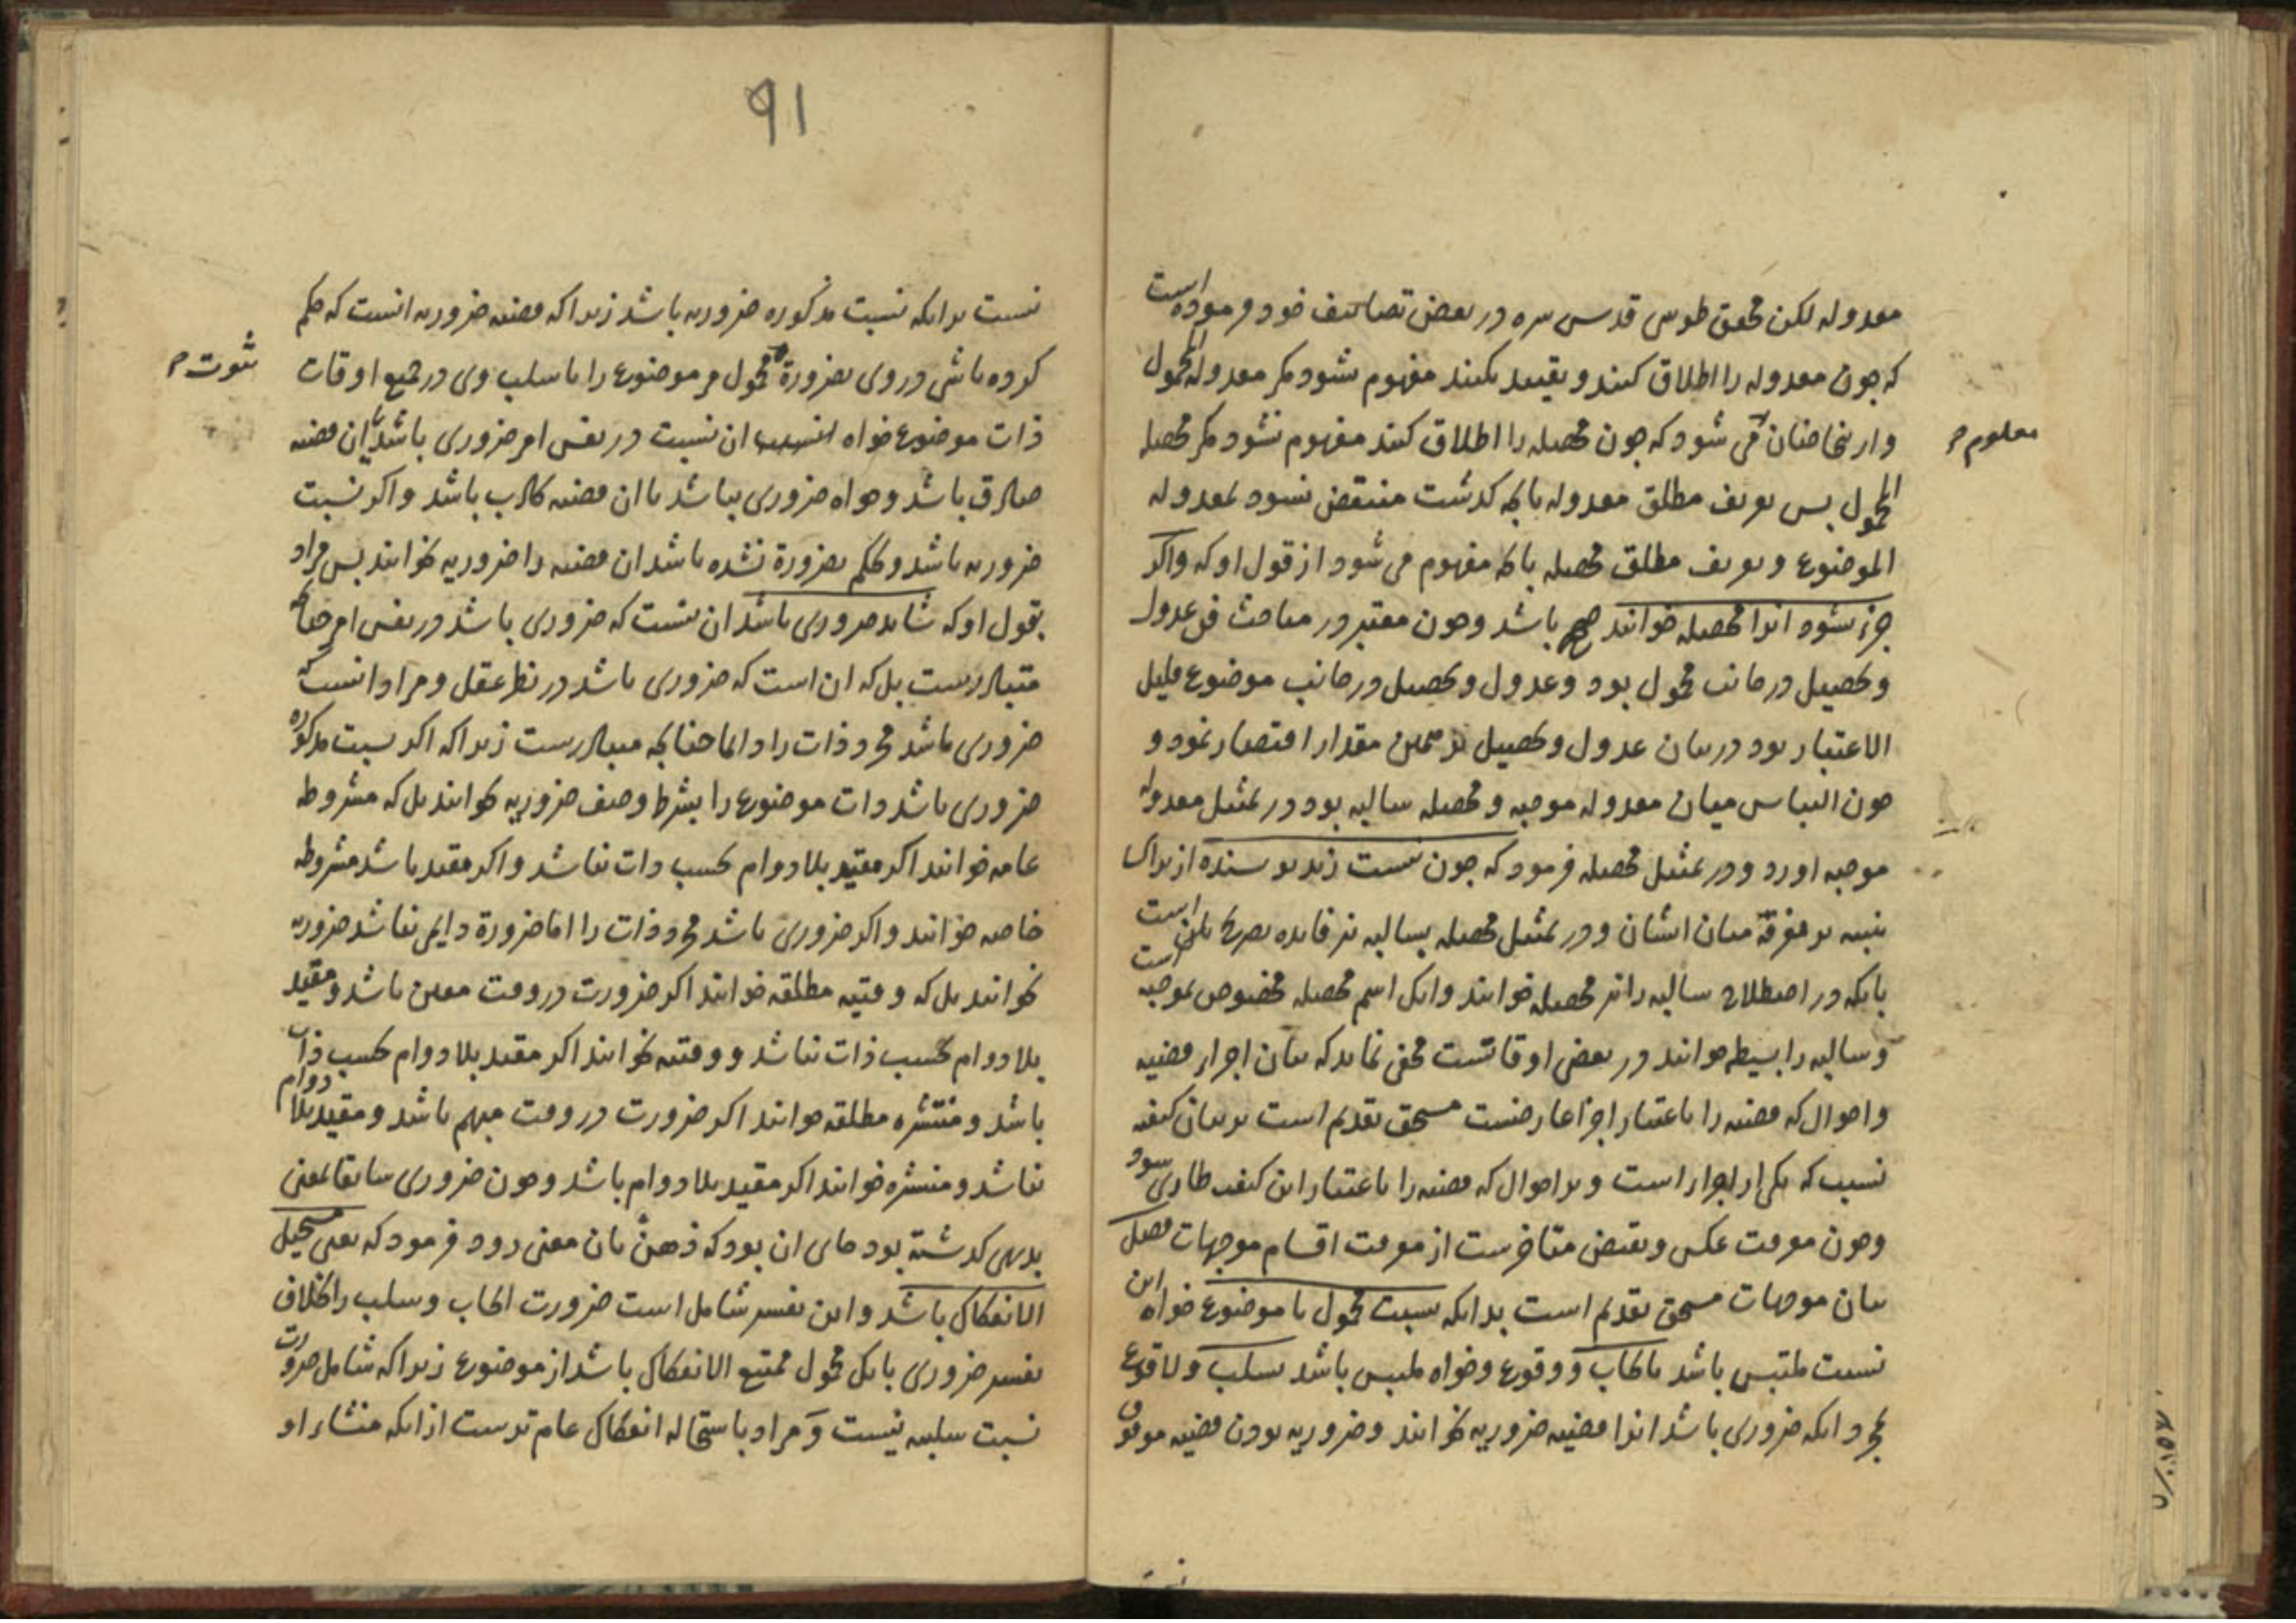 معدوله لکن محقق طوسی قدس سره در بعض تصانیف خود فرموده است
که چون معدوله را اطلاق کنند و تقیید نکنند مفهوم نشود مگر معدولة المحمول
و از اینجا چنان معلوم می شود که چون محصله را اطلاق کنند مفهوم نشود مگر محصلة
المحمول پس تعریف مطلق معدوله بانچه گذشت منتقض نشود بمعدولة
الموضوع و تعریف مطلق محصله بانچه مفهوم می شود از قول او که و اگر
جزء نشود انرا محصله خوانند صحیح باشد و چون معتبر در مباحث فن عدول
و تحصیل در جانب محمول بود و عدول و تحصیل در جانب موضوع قلیل
الاعتبار بود در بیان عدول و تحصیل بر همین مقدار اقتصار نمود و
چون التباس میان معدوله موجبه و محصله سالبه بود در تمثیل معدوله
موجبه اورد و در تمثیل محصله فرمود که چون نیست زید نویسنده از برای
تنبیه بر تفرقه میان ایشان و در تمثیل محصله بسالبه نیز فایده تصریح است
بانکه در اصطلاح سالبه را نیز محصله خوانند و انکه اسم محصله مخصوص بموجبه است
و سالبه را بسیطه خوانند در بعض اوقاتست مخفی نماند که بیان اجزاء قضیه
و احوال که قضیه را باعتبار اجزا عارضست مستحق تقدیم است بر بیان کیفیت
نسبت که یکی از اجزاء است و بر احوال که قضیه را باعتبار این کیفیت طاری شود
و چون معرفت عکس و نقیض متاخرست از معرفت اقسام موجهات فصل
بیان موجهات مستحق تقدیم است بدانکه نسبت محمول با موضوع خواه این
نسبت ملتبس باشد بایجاب و وقوع و خواه ملتبس باشد بسلب و لا وقوع
بمجرد انکه ضروری باشد انرا قضیه ضروریه نخوانند و ضروریه بودن قضیه موقوف
معلوم
نیست
91
نیست بر انکه نسبت مذکوره ضروریه باشد زیرا که قضیه ضروریه انست که حکم
کرده باشی در وی بضرورة محمول مر موضوع را یا سلب وی در جمیع اوقات
ذات موضوع خواه ان نسبت در نفس امر ضروری باشد تا ان قضیه
صادق باشد و خواه ضروری نباشد تا ان قضیه کاذب باشد و اگر نسبت
ضروریه باشد و حکم بضرورة نشده باشد ان قضیه را ضروریه نخوانند پس مراد
بقول او که شاید ضروری باشد ان نیست که ضروری باشد در نفس امر چنانکه
متبادرست بل که ان است که ضروری باشد در نظر عقل و مراد انست که
ضروری باشد مجرد ذات را دایما چنانکه متبادرست زیرا که اگر نسبت مذکوره
ضروری باشد ذات موضوع را بشرط وصف ضروریه نخوانند بل که مشروطه
عامه خوانند اگر مقید بلا دوام بحسب ذات نباشد و اگر مقید باشد مشروطه
خاصه خوانند و اگر ضروری باشد مجرد ذات را اما ضرورة دایمی نباشد ضروریه
نخوانند بل که وقتیه مطلقه خوانند اگر ضرورت در وقت معین باشد و مقید
بلا دوام بحسب ذات نباشد و وقتیه خوانند اگر مقید بلا دوام بحسب ذات
باشد و منتشره مطلقه خوانند اگر ضرورت در وقت مبهم باشد و مقید بلا دوام
نباشد و منتشره خوانند اگر مقید بلا دوام باشد و چون ضروری سابقا بمعنی
بدیهی گذشته بود جای ان بود که ذهن بان معنی رود فرمود که یعنی مستحیل
الانفکاک باشد و این تفسیر شامل است ضرورت ایجاب و سلب را بخلاف
تفسیر ضروری بانکه محمول ممتنع الانفکاک باشد از موضوع زیرا که شامل ضرورت
نسبت سلبیه نیست و مراد باستحاله انفکاک عام ترست از انکه منشاء او
ثبوت